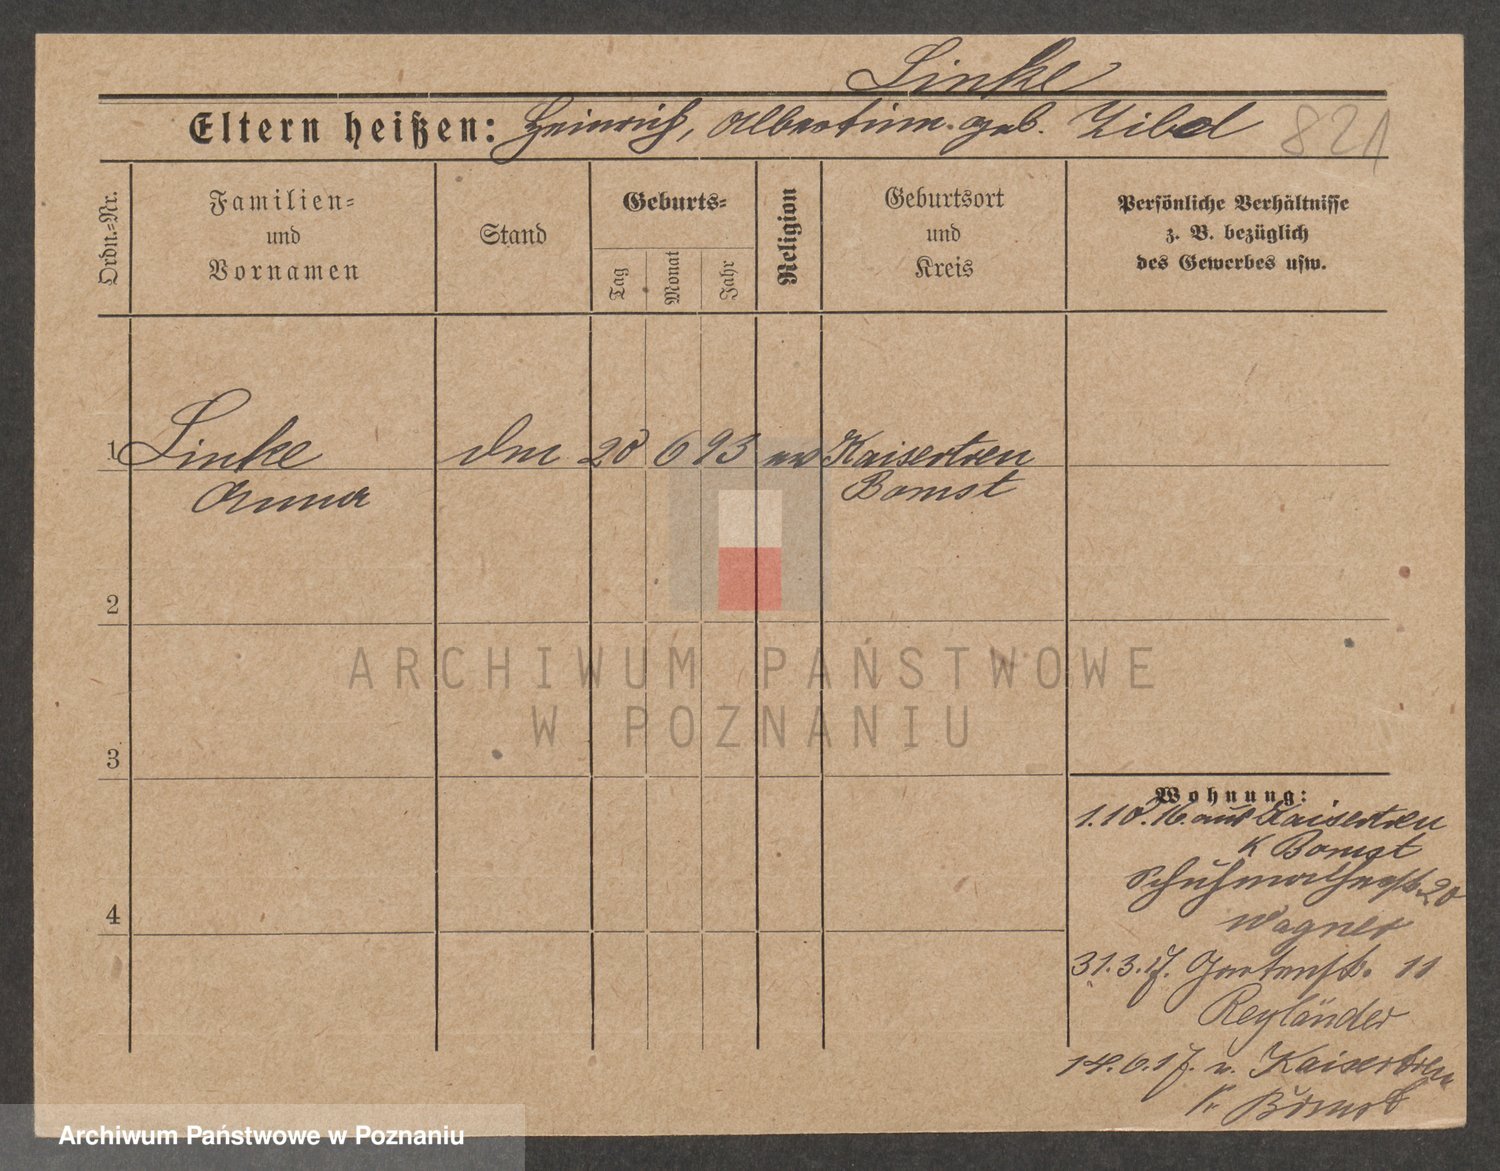 Linke
Eltern heißen: Heinrich, Albertine geb. Zibol
821
Ordn.-Nr.
Familien-
und
Vornamen
Stand
Geburts-
Tag
Monat
Jahr
Religion
Geburtsort
und
Kreis
Persönliche Verhältnisse
z. B. bezüglich
des Gewerbes usw.
1 Linke 20 6 93 Kaisertreu
Anna Bomst
2
3
4
Wohnung:
1.10.16. aus Kaisertreu
K Bomst
Schuhmacherstr. 20
Wagner
31.3.17. Gartenstr. 11
Reyländer
14.6.17. n. Kaisertreu
Kr. Bomst
ARCHIWUM PAŃSTWOWE
W POZNANIU
Archiwum Państwowe w Poznaniu